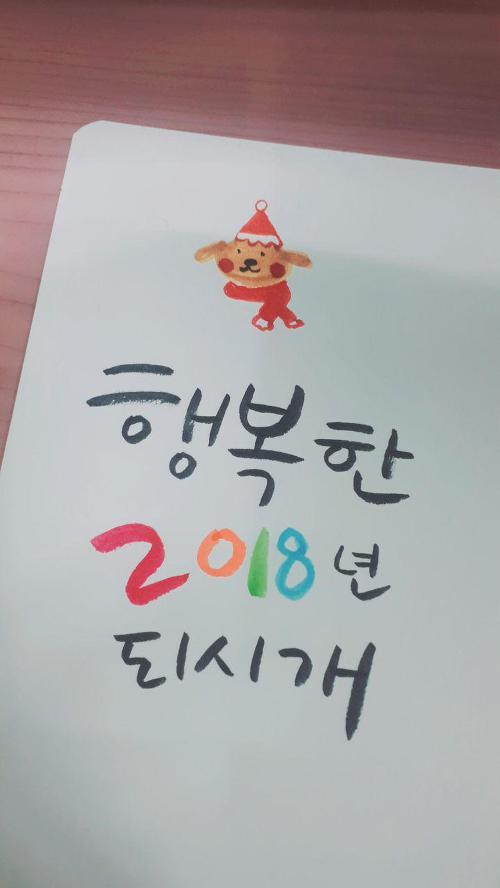 행복한
2018년
되시개